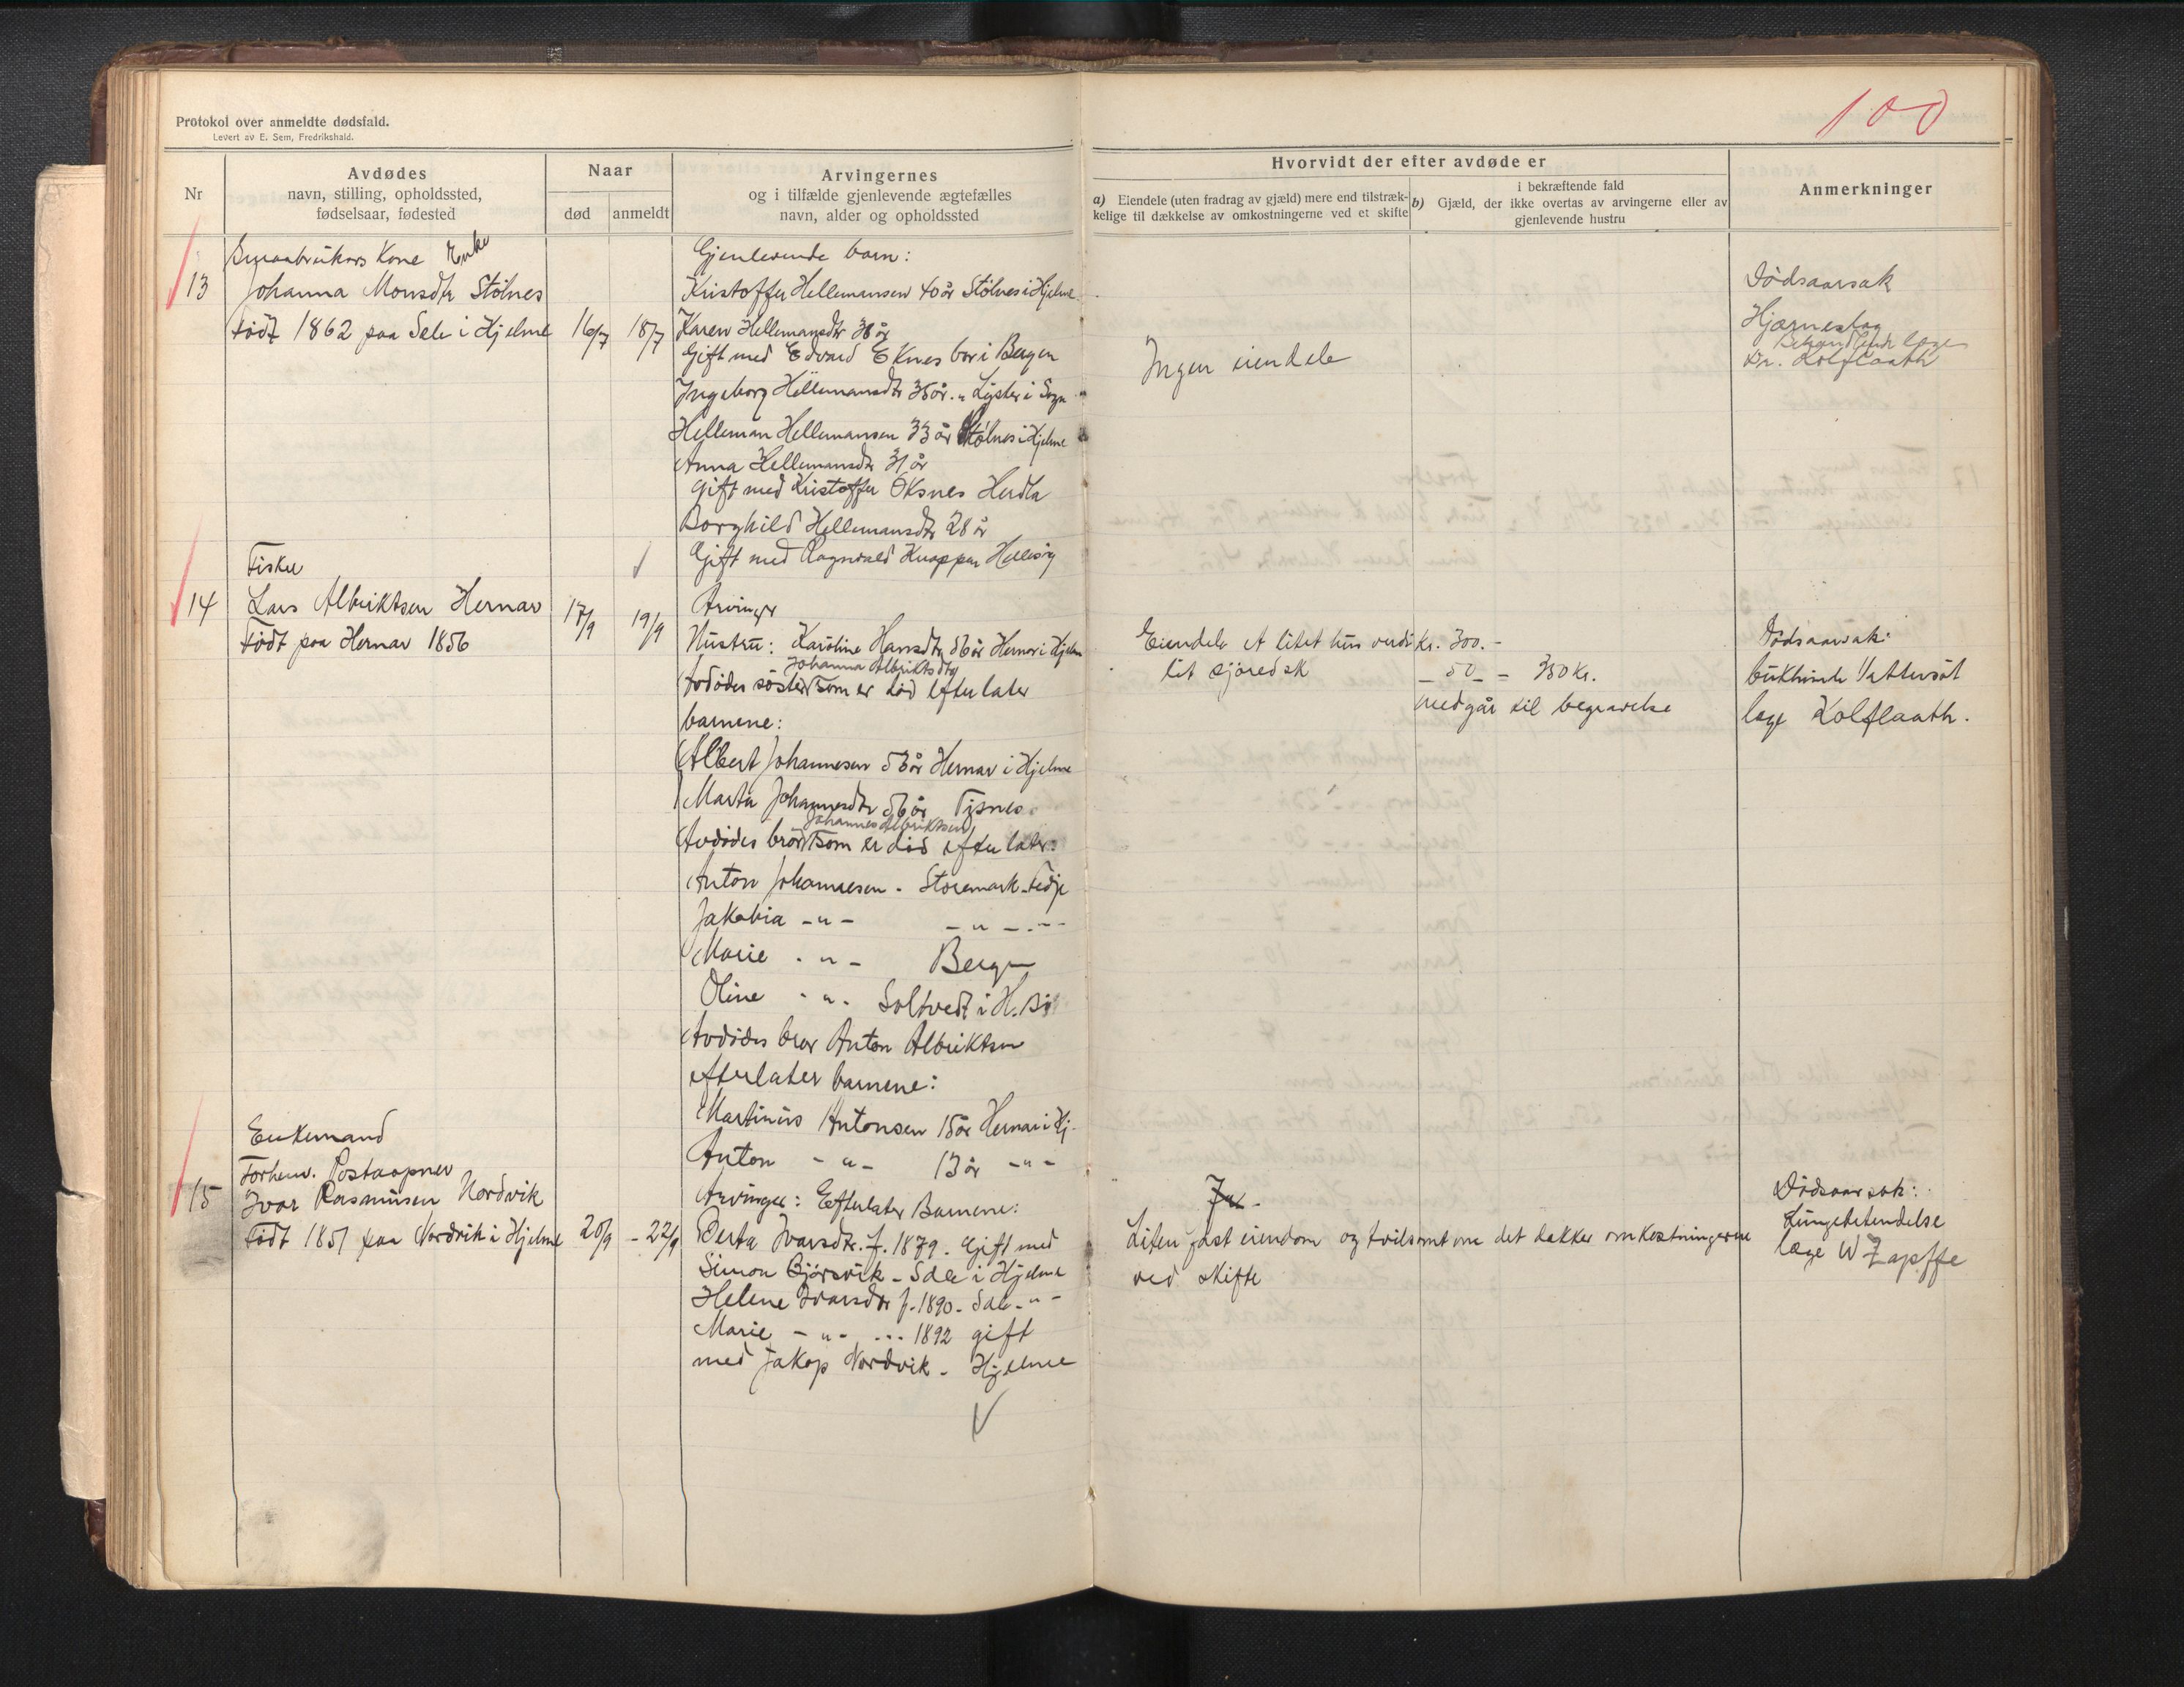 100
Protokol over anmeldte dødsfald.
Levert av E. Sem, Fredrikshald.
Nr
Avdødes
navn, stilling, opholdssted,
fødselsaar, fødested
Naar
død
anmeldt
Arvingernes
og i tilfælde gjenlevende ægtefælles
navn, alder og opholdssted
Hvorvidt der efter avdøde er
a) Eiendele (uten fradrag av gjæld) mere end tilstræk-
kelige til dækkelse av omkostningerne ved et skifte
i bekræftende fald
b) Gjæld, der ikke overtas av arvingerne eller av
gjenlevende hustru
Anmerkninger
Smaabrukars Kone Enke
13 Johanna Monsdtr Stölnes
födt 1862 paa Sele i Hjelme 16/7 18/7
Gjenlevende barn:
Kristoffer Hellemansen 40 år Stölnes i Hjelme
Karen Hellemansdtr 38 år
Gift med Edvard Eknes bor i Bergen
Ingeborg Hellemansdtr 36 år. " Lyster i Sogn
Helleman Hellemansen 33 år Stölnes i Hjelme
Anna Hellemansdtr 31 år
gift med Kristoffer Oksnes Herdla
Borghild Hellemansdtr 28 år
Gift med Ragnvald Knappen Hellesöy
Ingen eiendele
Dödsaarsak
Hjærneslag
Behandlende læge
Dr. Kolflaath
Fisker
14 Lars Albriktsen Hernar 17/9 19/9
födt paa Hernar 1856
Arvinger
Hustru: Karoline Hansdtr 56 år Hernar i Hjelme
Johanna Albriktsdtr
Avdödes söster som er död efterlater
barnene:
Albert Johannesen 53 år Hernar i Hjelme
Marta Johannesdtr 56 år Tysnes
Johannes Albriktsen
Avdödes bror som er död efterlater:
Anton Johannesen - Storemark - Fedje
Jakobia - " - - " - - " -
Marie - " - Bergen
Oline - " - Soltvedt i H. Bö
Avdödes bror Anton Albriktsen
efterlater barnene:
Martinus Antonsen 15 år Hernar i Hj.
Anton - " - 13 år - " -
Eiendele et litet hus verdi kr. 300.-
lit sjöredsk - 50 - = 350 Kr.
medgår til begravelse
Dödsaarsak:
bukhinde
læge Kolflaath.
Enkemand
Forhenv. Postaapner
15 Ivar Rasmusen Nordvik
födt 1851 paa Nordvik i Hjelme 20/9 - 22/9
Arvinger: Efterlater Barnene:
Berta Ivarsdtr. f. 1879. Gift med
Simon Björsvik - Sele i Hjelme
Helene Ivarsdtr f. 1890 - Sele - " -
Marie - " - - - - 1892 gift
med Jakop Nordvik - Hjelme
Ja.
Liten fast eiendom og tvilsomt om det dækker omkostningerne
ved skifte
Dödsaarsak:
Lungebetendelse
læge W Zapffe